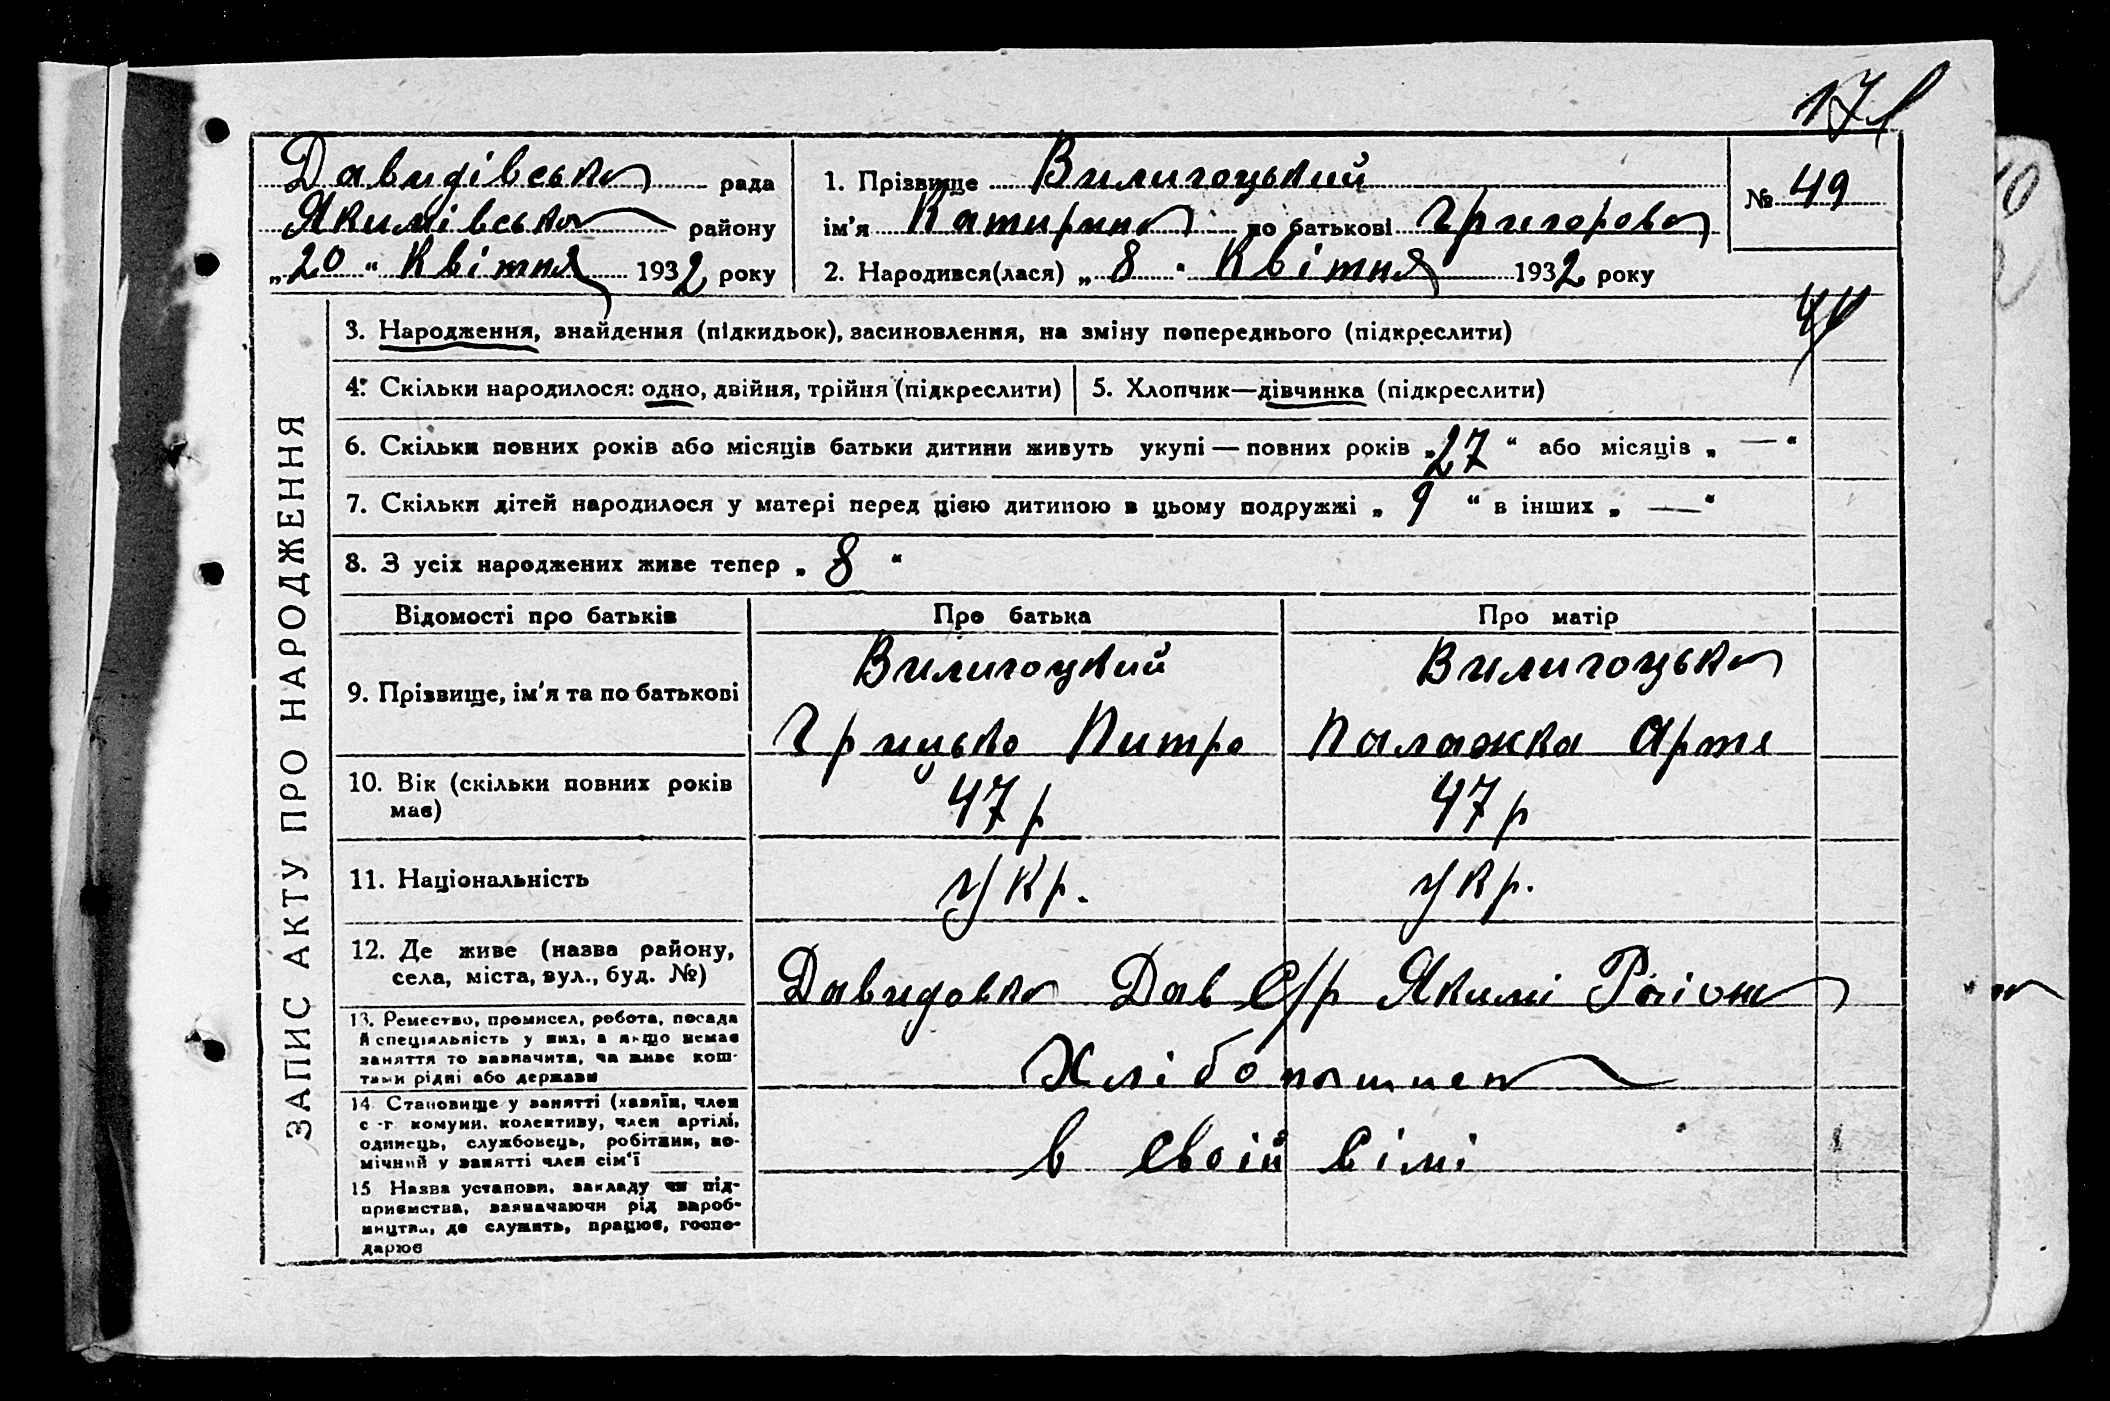 171
Давидівська рада
Якимівська району
„20“ Квітня 1932 року
1. Прізвище Вилигоцький
ім'я Катирина по батькові Григорова
2. Народився(лася) „8“ Квітня 1932 року
№ 49
ЗАПИС АКТУ ПРО НАРОДЖЕННЯ
3. Народження, знайдення (підкидьок), засиновлення, на зміну попереднього (підкреслити)
4. Скільки народилося: одно, двійня, трійня (підкреслити)
5. Хлопчик—дівчинка (підкреслити)
6. Скільки повних років або місяців батьки дитини живуть укупі — повних років „27“ або місяців „—“
7. Скільки дітей народилося у матері перед цією дитиною в цьому подружжі „9“ в інших „—“
8. З усіх народжених живе тепер „8“
Відомості про батьків
Про батька
Про матір
9. Прізвище, ім'я та по батькові
Вилигоцкий
Грицько Питро
Вилигоцька
Палажка Арте
10. Вік (скільки повних років
має)
47 р
47 р
11. Національність
Укр.
Укр.
12. Де живе (назва району,
села, міста, вул., буд. №)
Давидовка Дав С/р Якимі Раіона
13. Ремество, промисел, робота, посада
й спеціяльність у них, а якщо немає
заняття то зазначити, чи живе кош-
тами рідні або держави
Хлібопашиеп
14. Становище у занятті (хазяїн, член
с.-г. комуни, колективу, член артілі,
одинець, службовець, робітник, по-
мічний у занятті член сім'ї
в своій сімі
15 Назва установи, закладу чи під-
приємства, зазначаючи рід вироб-
ництва, де служить, працює, госпо-
дарює